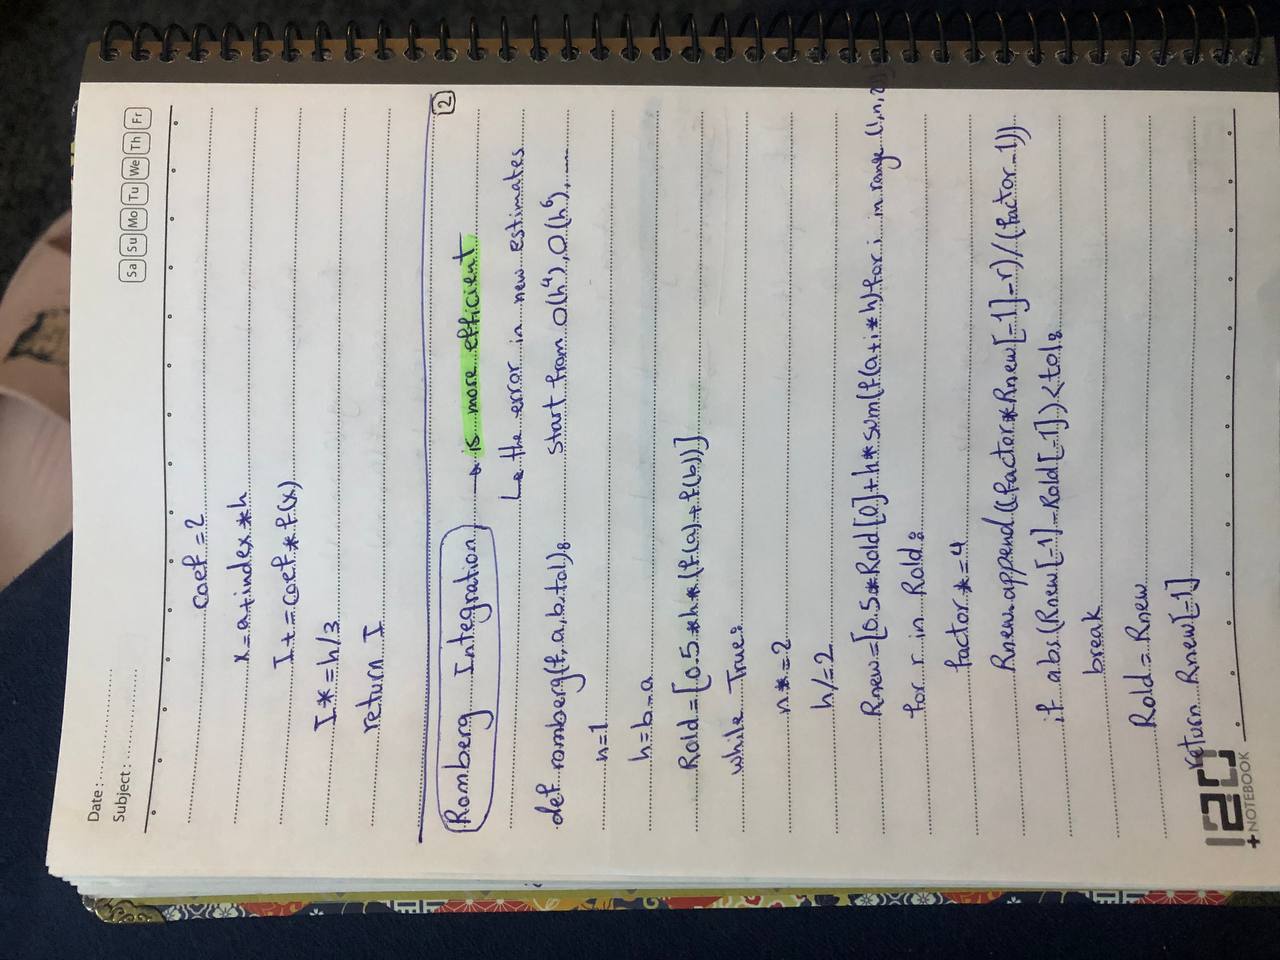 Date : ........................
Subject : ....................
Sa Su Mo Tu We Th Fr
coef = 2
x = a + index * h
I += coef * f(x)
I *= h/3
return I
2
Romberg Integration → is more efficient
↳ the error in new estimates
start from O(h⁴), O(h⁶), ......
def romberg(f, a, b, tol):
n = 1
h = b - a
Rold = [0.5 * h * (f(a) + f(b))]
while True:
n *= 2
h /= 2
Rnew = [0.5 * Rold[0] + h * sum(f(a + i * h) for i in range (1, n, 2
for r in Rold:
factor *= 4
Rnew.append((factor * Rnew[-1] - r) / (factor - 1))
if abs(Rnew[-1] - Rold[-1]) < tol:
break
Rold = Rnew
return Rnew[-1]
120
+NOTEBOOK